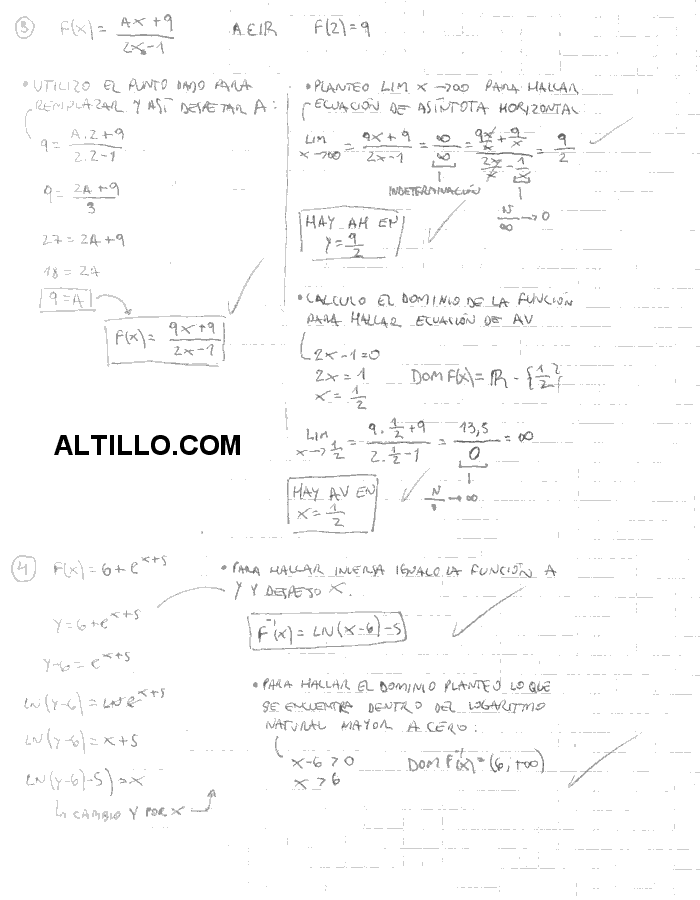 3 F(x) = AX + 9 / 2X - 1 A E IR F(2) = 9
• UTILIZO EL PUNTO DADO PARA
REMPLAZAR Y ASÍ DESPEJAR A:
9 = A.2 + 9 / 2.2 - 1
9 = 2A + 9 / 3
27 = 2A + 9
18 = 2A
9 = A
F(x) = 9X + 9 / 2X - 1
• PLANTEO LIM X → ∞ PARA HALLAR
ECUACIÓN DE ASÍNTOTA HORIZONTAL
LIM X → ∞ = 9X + 9 / 2X - 1 = ∞ / ∞ = 9X/X + 9/X / 2X/X - 1/X = 9 / 2
INDETERMINACIÓN
N / ∞ → 0
HAY AH EN
Y = 9 / 2
• CALCULO EL DOMINIO DE LA FUNCIÓN
PARA HALLAR ECUACIÓN DE AV
2X - 1 = 0
2X = 1 DOM F(x) = IR - {1/2}
X = 1 / 2
LIM X → 1/2 = 9 . 1/2 + 9 / 2 . 1/2 - 1 = 13,5 / 0 = ∞
HAY AV EN
X = 1 / 2
ALTILLO.COM
4 F(x) = 6 + e^x+5
Y = 6 + e^x+5
Y - 6 = e^x+5
LN(Y-6) = LN e^x+5
LN(Y-6) = X + 5
LN(Y-6) - 5) = X
CAMBIO Y POR X
• PARA HALLAR INVERSA IGUALO LA FUNCIÓN A
Y Y DESPEJO X.
F⁻¹(x) = LN(X-6) - 5
• PARA HALLAR EL DOMINIO PLANTEO LO QUE
SE ENCUENTRA DENTRO DEL LOGARITMO
NATURAL MAYOR A CERO:
X - 6 > 0 DOM F⁻¹(x) = (6, +∞)
X > 6